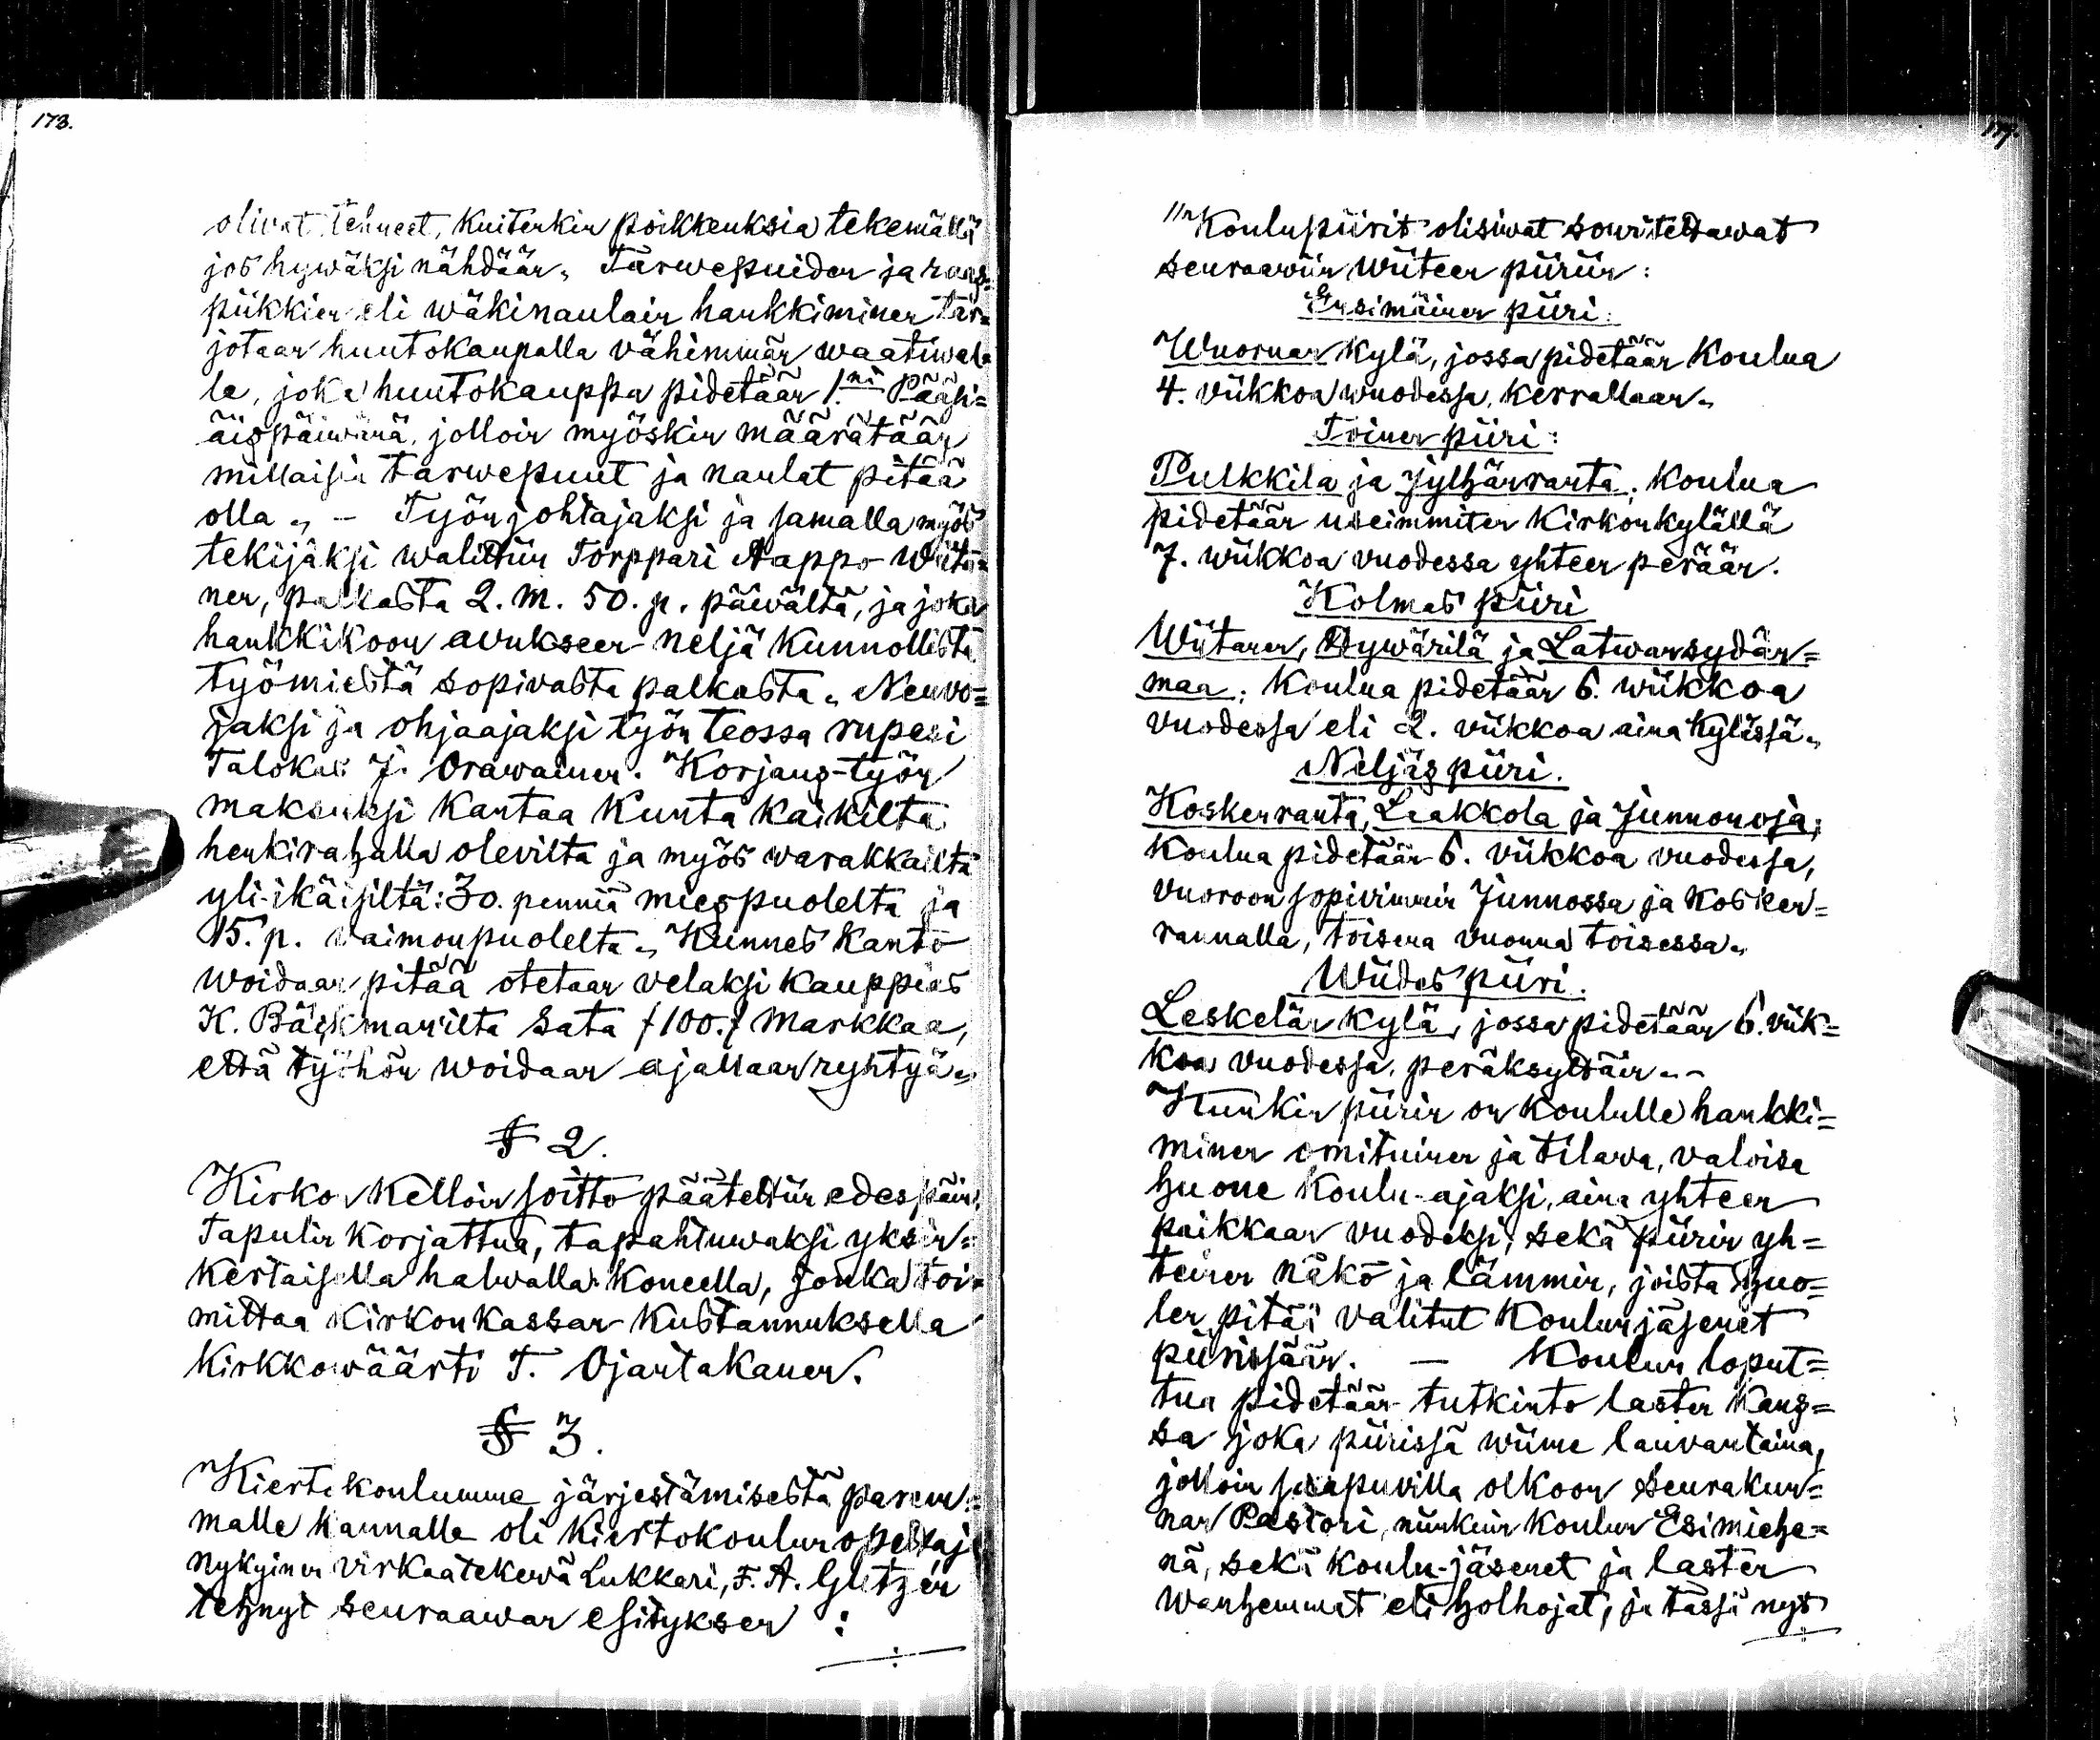 173.
olivat tehneet, kuitenkin poikkeuksia tekemällä
jos hywäksi nähdään. Tarwepuiden ja raus=
piikkien eli wäkinaulain hankkiminen tar=
jotaan huutokaupalla vähimmän waatiwal=
le, joka huutokauppa pidetään 1.ni Pääsi=
äispäiwänä, jolloin myöskin määrätään
millaisia tarwepuut ja naulat pitää
olla. — Työnjohtajaksi ja samalla myös
tekijäksi walittiin Torppari Aappo Wiitä=
nen, palkasta 2. m. 50. p. päiwältä, ja joka
hankkikoon avukseen neljä kunnollista
työmiestä sopivasta palkasta. Neuvo=
jaksi ja ohjaajaksi työn teossa rupesi
Talokas J. Orawainen. Korjaus-työn
maksuksi kantaa Kunta kaikilta
henkirahalla olevilta ja myös warakkailta
yli-ikäisiltä: 30. penniä miespuolelta ja
15. p. vaimonpuolelta. Kunnes kanto
woidaan pitää otetaan velaksi kauppias
K. Bäckman'ilta Sata /100./ Markkaa,
että työhön woidaan ajallaan ryhtyä.
§ 2.
Kirkon kelloin soitto päätettiin edespäin,
Tapulin korjattua, tapahtuwaksi yksin=
kertaisella halwalla koneella, jonka toi=
mittaa Kirkonkassan kustannuksella
Kirkkowäärti T. Ojantakanen.
§ 3.
Kiertokoulumme järjestämisestä parem=
malle kannalle oli Kiertokoulun opettaja
nykyinen virkaatekewä Lukkari, F. A. Gutzén
tehnyt seuraawan esityksen :
÷
174.
"Koulupiirit olisiwat sowitettawat
seuraawiin wiiteen piiriin:
Ensimäinen piiri:
Wuornan kylä, jossa pidetään koulua
4. viikkoa wuodessa, kerrallaan.
Toinen piiri:
Pulkkila ja Jylhänranta; koulua
pidetään useimmiten Kirkonkylällä
7. wiikkoa vuodessa yhteen perään.
Kolmas piiri
Wiitanen, Hywärilä ja Latwansydän=
maa; koulua pidetään 6. wiikkoa
vuodessa eli 2. viikkoa aina kylässä.
Neljäs piiri.
Koskenranta, Laakkola ja Junnonoja;
koulua pidetään 6. viikkoa vuodessa,
vuoroon sopivimmin Junnossa ja Kosken=
rannalla, toisena vuonna toisessa.
Wiides piiri.
Leskelän kylä, jossa pidetään 6. viik=
koa vuodessa, peräksyttäin. -
Kunkin piirin on koululle hankki=
minen omituinen ja tilava, valoisa
huone koulu-ajaksi, aina yhteen
paikkaan vuodeksi; sekä piirin yh=
teinen näkö ja lämmin, joista huo=
len pitää valitut Koulunjäsenet
piirissään. — Koulun loput=
tua pidetään tutkinto lasten kans=
sa joka piirissä wiime lauvantaina,
jolloin saapuvilla olkoon Seurakun=
nan Pastori, niinkuin koulun Esimiehe=
nä, sekä koulu-jäsenet ja lasten
wanhemmat eli holhojat, ja tässä nyt
÷